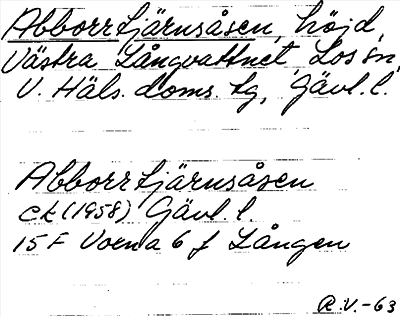 Abborrtjärnsåsen, höjd,
Västra Långvattnet, Los sn,
V. Häls. doms. tg, Gävl. l.
Abborrtjärnsåsen
Ek (1958) Gävl. l.
15 F Voxna 6 f Lången
R.V.-63